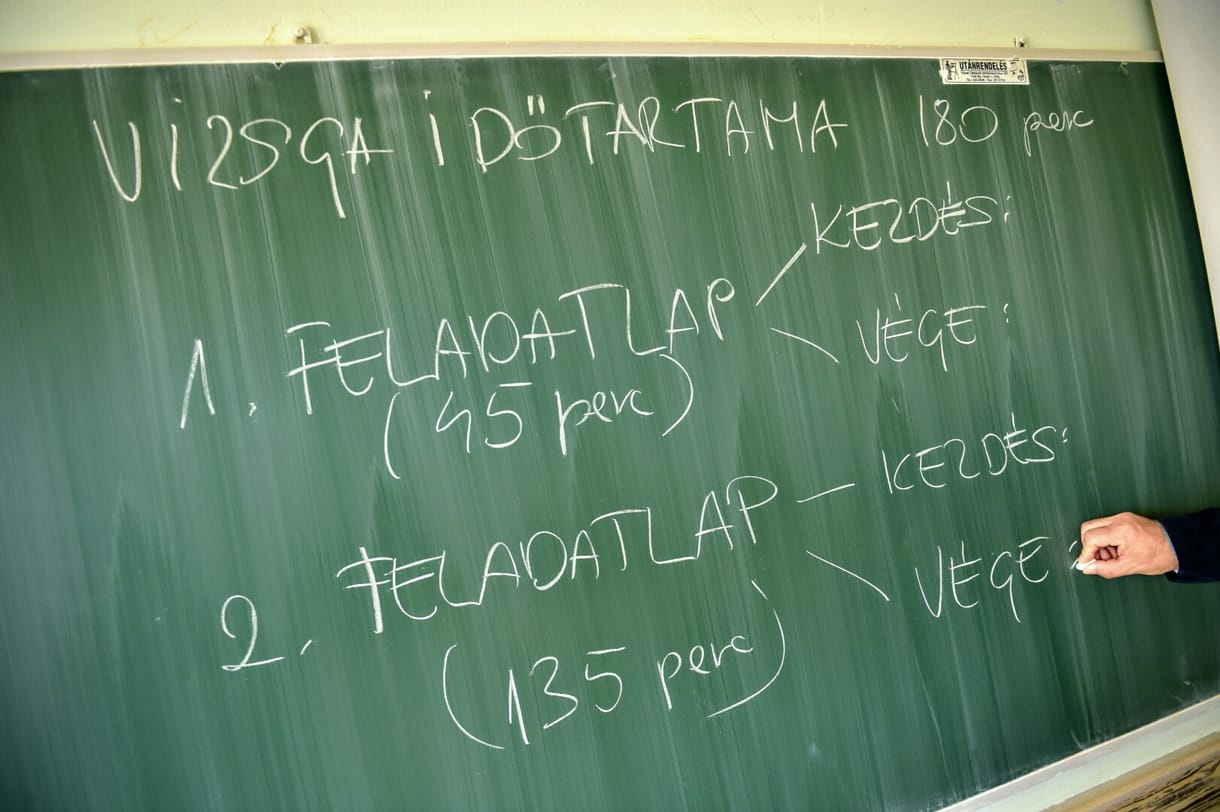 UTÁNRENDELÉS
VIZSGA IDŐTARTAMA 180 perc
1. FELADATLAP
KEZDÉS:
VÉGE:
(45 perc)
2. FELADATLAP
KEZDÉS:
VÉGE:
(135 perc)